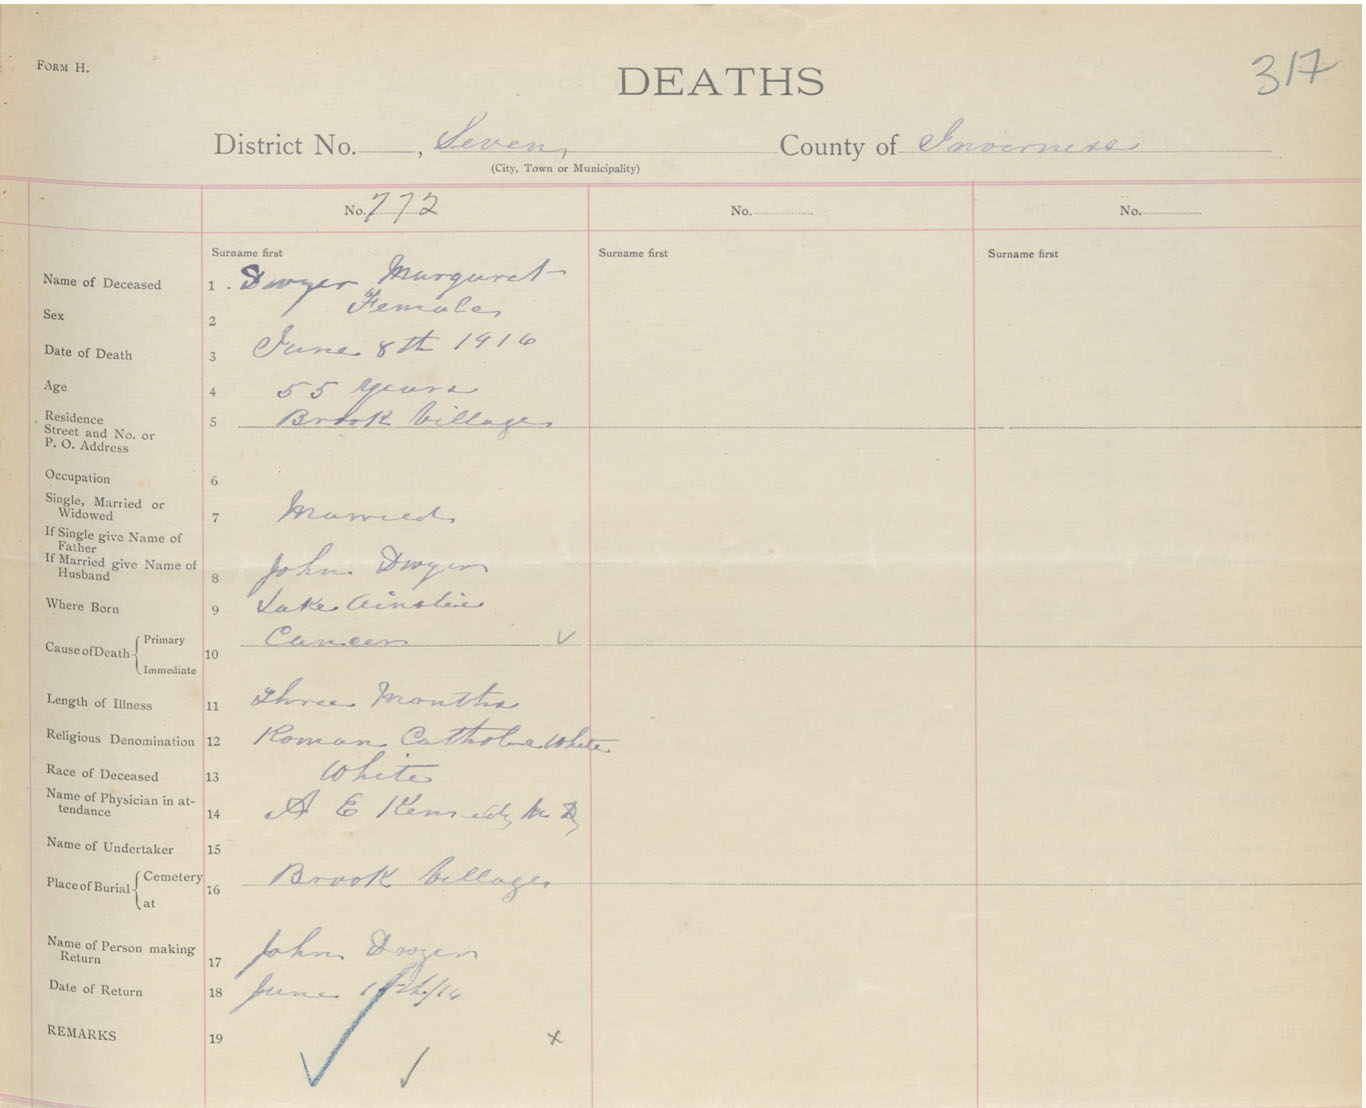 FORM H.
317
DEATHS
District No. , Seven County of Inverness
(City, Town or Municipality)
No. 772 No. No.
Surname first Surname first Surname first
Name of Deceased 1 Dwyer Margaret
Sex 2 Female
Date of Death 3 June 8th 1916
Age 4 55 years
Residence
Street and No. or
P. O. Address 5 Brook Village
Occupation 6
Single, Married or
Widowed 7 Married
If Single give Name of
Father
If Married give Name of
Husband 8 John Dwyer
Where Born 9 Lake Ainslie
Cause of Death { Primary
Immediate 10 Cancer
Length of Illness 11 Three Months
Religious Denomination 12 Roman Catholic White
Race of Deceased 13 White
Name of Physician in at-
tendance 14 A E Kennedy M D
Name of Undertaker 15
Place of Burial { Cemetery
at 16 Brook Village
Name of Person making
Return 17 John Dwyer
Date of Return 18 June /16
REMARKS 19 x